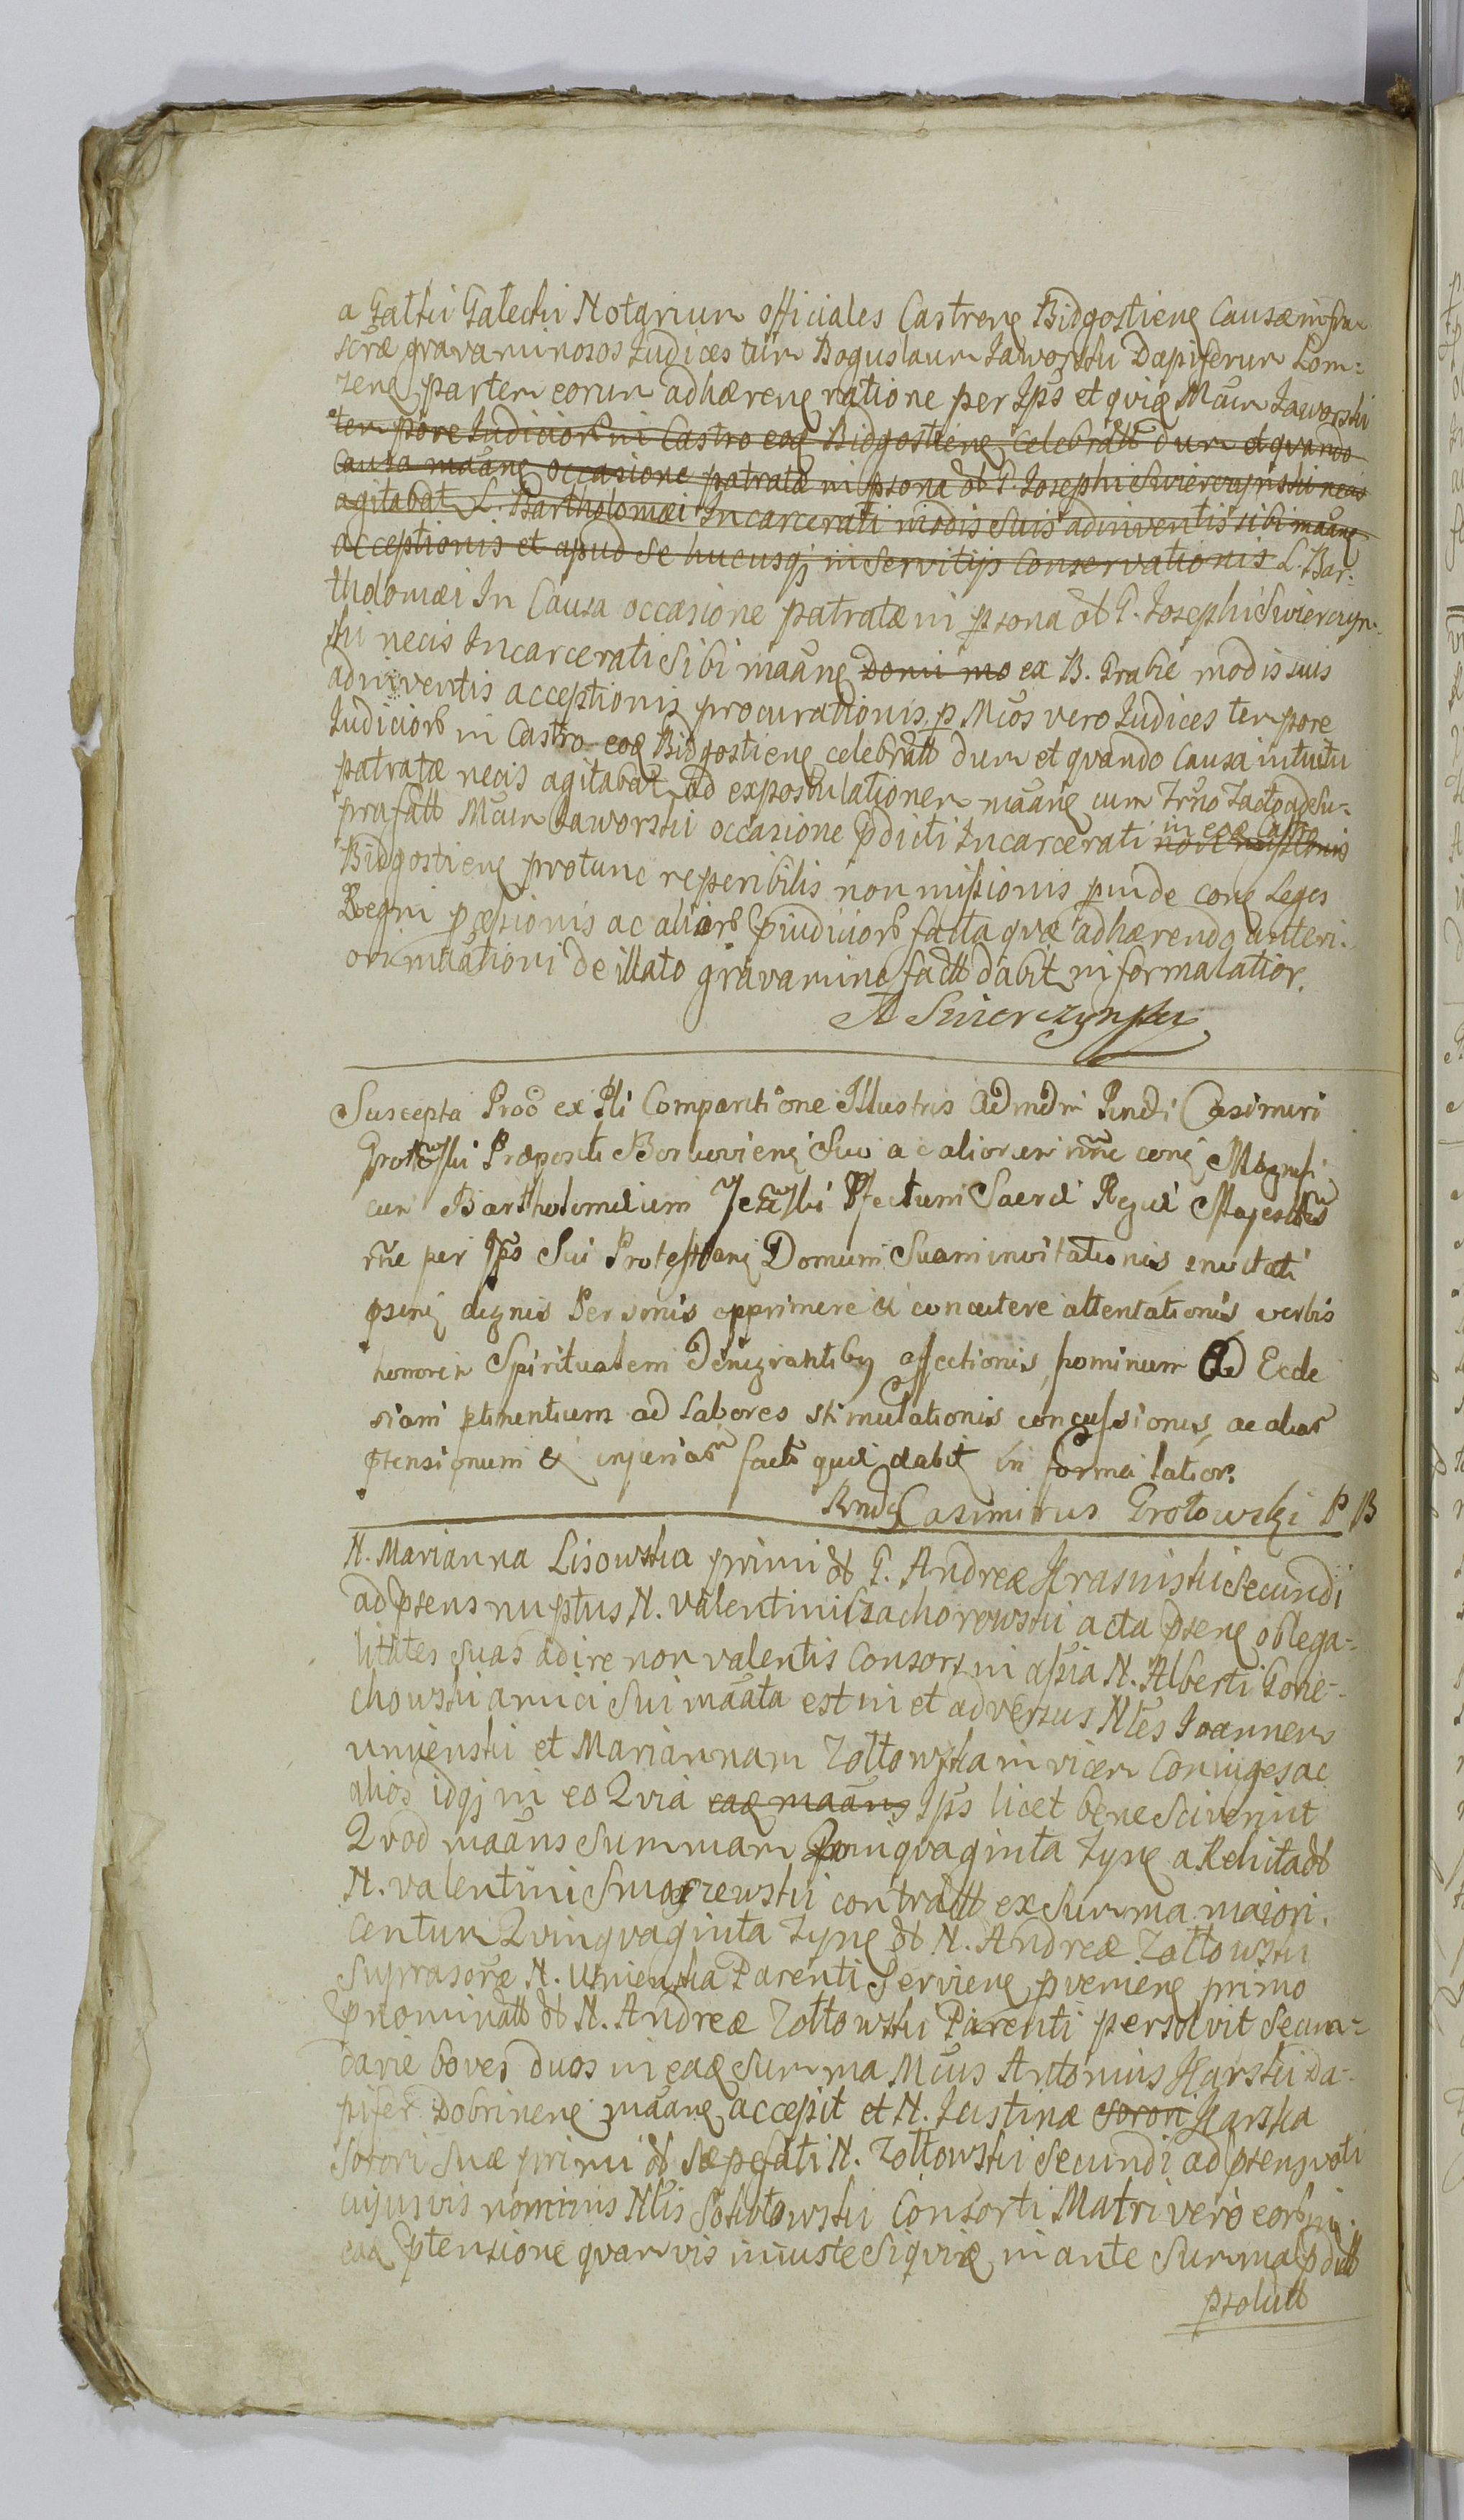 a Galtki Galecki Notarium officiales Castren Bidgostien Causæ infra
scræ gravaminosos Judices tum Boguslaum Jaworski Dapiferum Lom=
zen partem eorum adhæren ratione per Ips et quia Mcum Jaworski
tempore Judiciorum in Castro eoq Bidgostien celebratt dum et quando
causa maãne occasione patratæ in psona ol G. Josephi Swierczynski necis
agitabat L. Bartholomæi Incarcerati modis suis adinventis sibi maãne
acceptionis et apud se hucusqj in servitijs conservationis L. Bar=
tholomæi In Causa occasione patratæ in psona ol G. Josephi Swierczyn=
ski necis Incarcerati sibi maãne Domi mo ex B. Grabie modis suis
adinventis acceptionis procurationis, p Mcos vero Judices tempore
Judiciorum in Castro eoq Bidgostien celebratt dum et quando Causa intuitu
patratæ necis agitabat ad expostulationem maãne cum
præfatt Mcum Jaworski occasione pdicti Incarcerati in eoq Castro
Bidgostien protunc reperibilis non missionis proinde con Leges
Regni pæssionis ac aliorum pjudiciorum facta quæ adhærendo anteri=
ori mãationi de illato gravamine fact dabit in forma latior.
A Swierczynski
Suscepta Prōō ex Pli Comparitione Illustris Admdm Rundi Casimiri
Grotowski Præpositi Boruovien Suo ac aliorum nre con Magnifi
cum Bartholomæum Jezewski Pfectum Sacræ Regiæ Majestatis
rñe per Ips Sui Protestan Domum Suam invitationis invitati
psen dignis Personis opprimere & concutere attentationis verbis
honorem Spiritualem denigrantibus affectionis, hominum Ad Eccle
siam ptinentium ad labores stimulationis concussionis, ac aliar
ptensionum & injuriar fact quæ dabit in forma latior.
Rnds Casimirus Grotowski P B
N. Marianna Lisowska primi ol G. Andreæ Krasinski secundi
ad psens nuptus N. Valentini Czachorowski acta psen ob lega=
litates suas adire non valentis Consors in assia N. Alberti Gorze=
chowski amici sui maãta est in et adversus Nles Joannem
Umienski et Mariannam Zottowska invicem Coniuges ac
alios idqj in eo Quia eaq maãns Ips licet bene sciverint
Quod maãns summam Quinquaginta Tyne a Relicta ol
N. Valentini Smogrzewski contractt ex summa maiori.
Centum Quinquaginta Tyne ol N. Andreæ Zottowski
Suprascræ N. Umienska Parenti servien pvenien primo
pnominatt ol N. Andreæ Zottowski Parenti persolvit secun=
darie boves duos in eaq summa Mcus Antonius Karski Da=
pifer Dobrinen maãne accepit et N. Justinæ soron Karska
sorori suæ primi ol sæpefati N. Zottowski secundi ad psens voti
cujusvis nominis Nlis Sokotowski Consorti Matri vero eorum in
eaq ptensione quamvis iniuste siquiæ in ante summa pdictt
psolutt